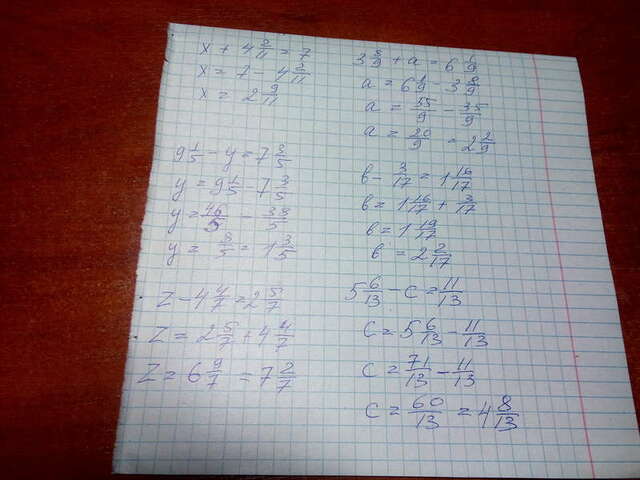 x + 4 2/11 = 7
x = 7 - 4 2/11
x = 2 9/11
9 1/5 - y = 7 3/5
y = 9 1/5 - 7 3/5
y = 46/5 - 38/5
y = 8/5 = 1 3/5
z - 4 4/7 = 2 5/7
z = 2 5/7 + 4 4/7
z = 6 9/7 = 7 2/7
3 8/9 + a = 6 1/9
a = 6 1/9 - 3 8/9
a = 55/9 - 35/9
a = 20/9 = 2 2/9
b - 3/17 = 1 16/17
b = 1 16/17 + 3/17
b = 1 19/17
b = 2 2/17
5 6/13 - c = 11/13
c = 5 6/13 - 11/13
c = 71/13 - 11/13
c = 60/13 = 4 8/13